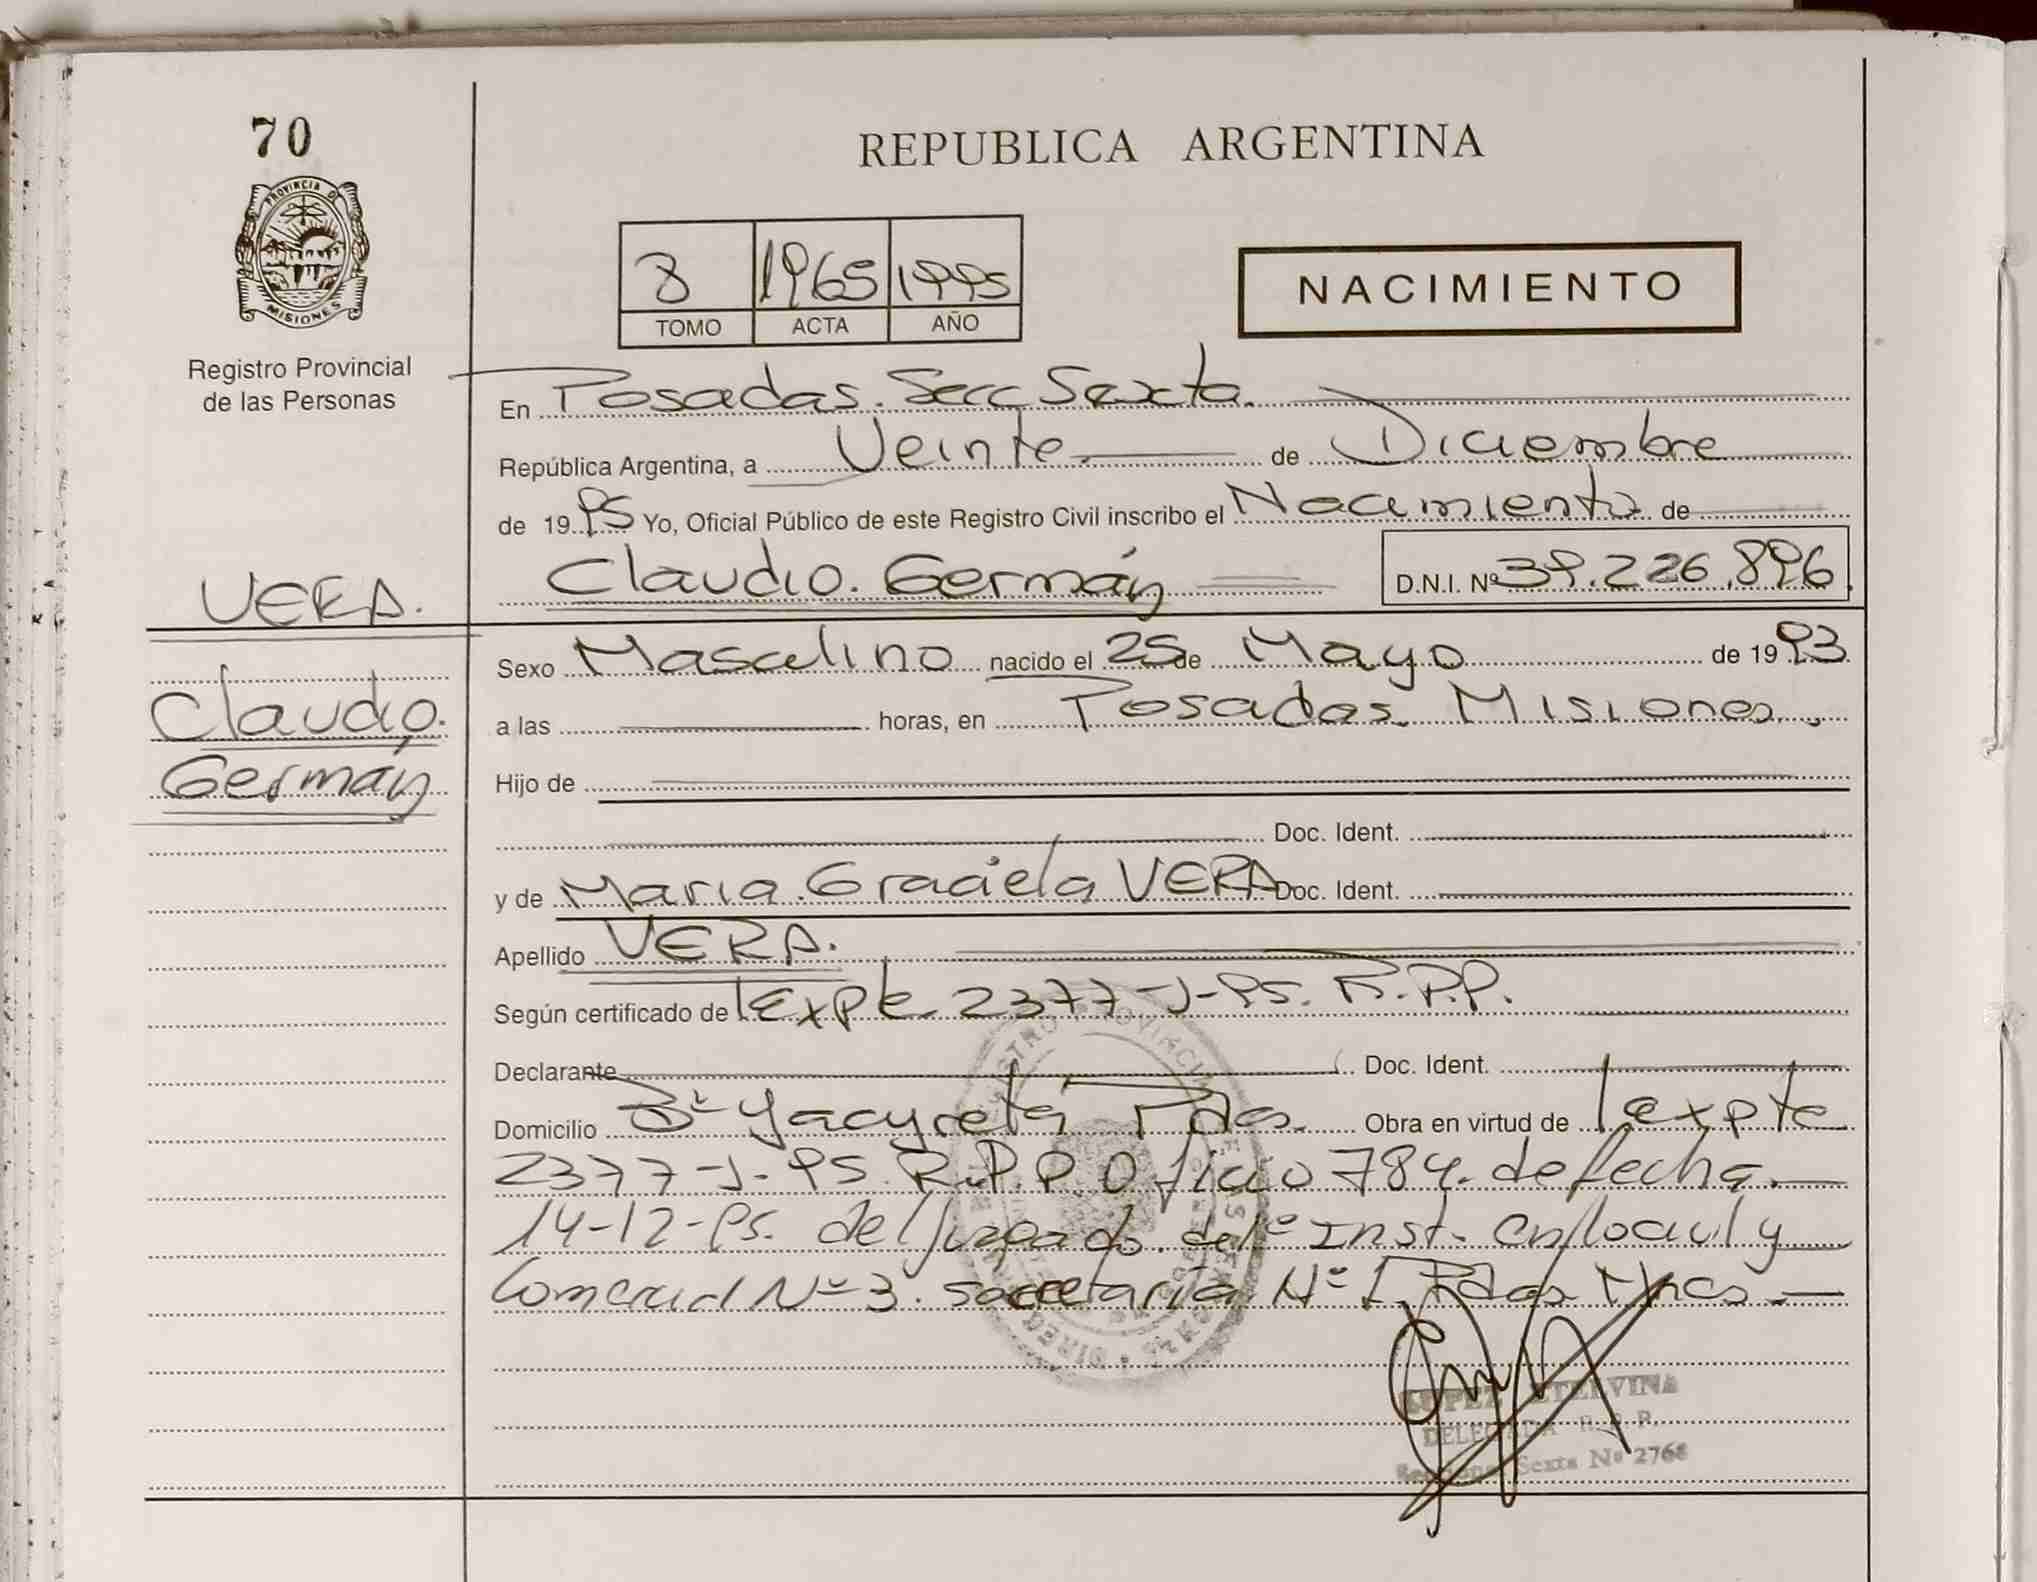 70
PROVINCIA DE
MISIONES
Registro Provincial
de las Personas
REPUBLICA ARGENTINA
8 1965 1995
TOMO ACTA AÑO
NACIMIENTO
En Posadas. Secc Sexta.
República Argentina, a Veinte de Diciembre
de 1995 Yo, Oficial Público de este Registro Civil inscribo el Nacimiento de
Claudio. Germán D.N.I. Nº 39.226.896
VERA.
Claudio.
Germán
Sexo Masculino nacido el 25 de Mayo de 1993
a las horas, en Posadas Misiones.
Hijo de
Doc. Ident.
y de Maria. Graciela VERA Doc. Ident.
Apellido VERA.
Según certificado de Expte 2377-J-95. R.P.P.
Declarante Doc. Ident.
Domicilio Bº Yacyretá Pdas. Obra en virtud de expte
2377-J-95. R.P.P. Oficio 784. de fecha
14-12-95. del Juzgado. de 1º Inst. en lo civil y
Comercial Nº 3. secretaría Nº 1 Pdas Mnes.
LOPEZ ETELVINA
DELEGADA R.P.P.
Sexta Nº 2768